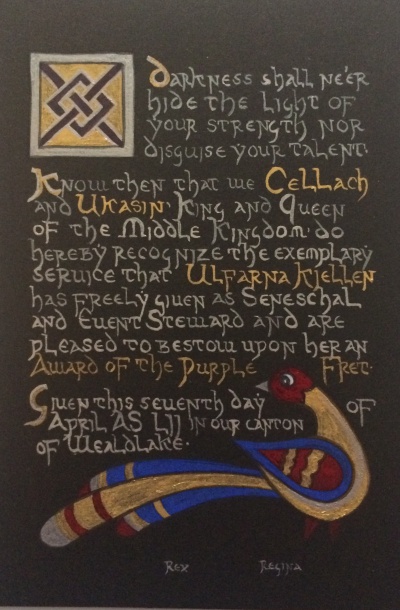 Darkness shall ne'er
hide the light of
your strength nor
disguise your talent.
Know then that we Cellach
and Ukasin. King and Queen
of the Middle Kingdom. do
hereby recognize the exemplary
service that Ulfarna Kjellen
has freely given as Seneschal
and Event Steward and are
pleased to bestow upon her an
Award of the Purple Fret.
Given this seventh day of
April AS LII in our canton
of Wealdlake.
Rex Regina